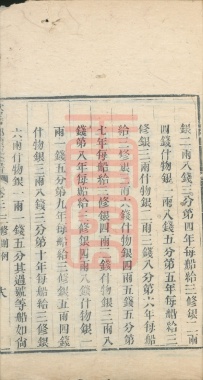 銀二兩八錢三分第四年每船給三修銀二兩
四錢什物銀二兩二錢五分第五年每船給三
修銀三兩什物銀二兩三錢八分第六年每船
給三修銀三兩六錢什物銀四兩五錢五分第
七年每船給三修銀四兩什物銀三兩八
錢第八年每船給三修銀四兩八錢什物銀二
兩一錢五分第九年每船給三修銀五兩四錢
什物銀三兩八錢三分第十年每船給三修銀
六兩什物銀二兩 錢五分其過號等船如尚